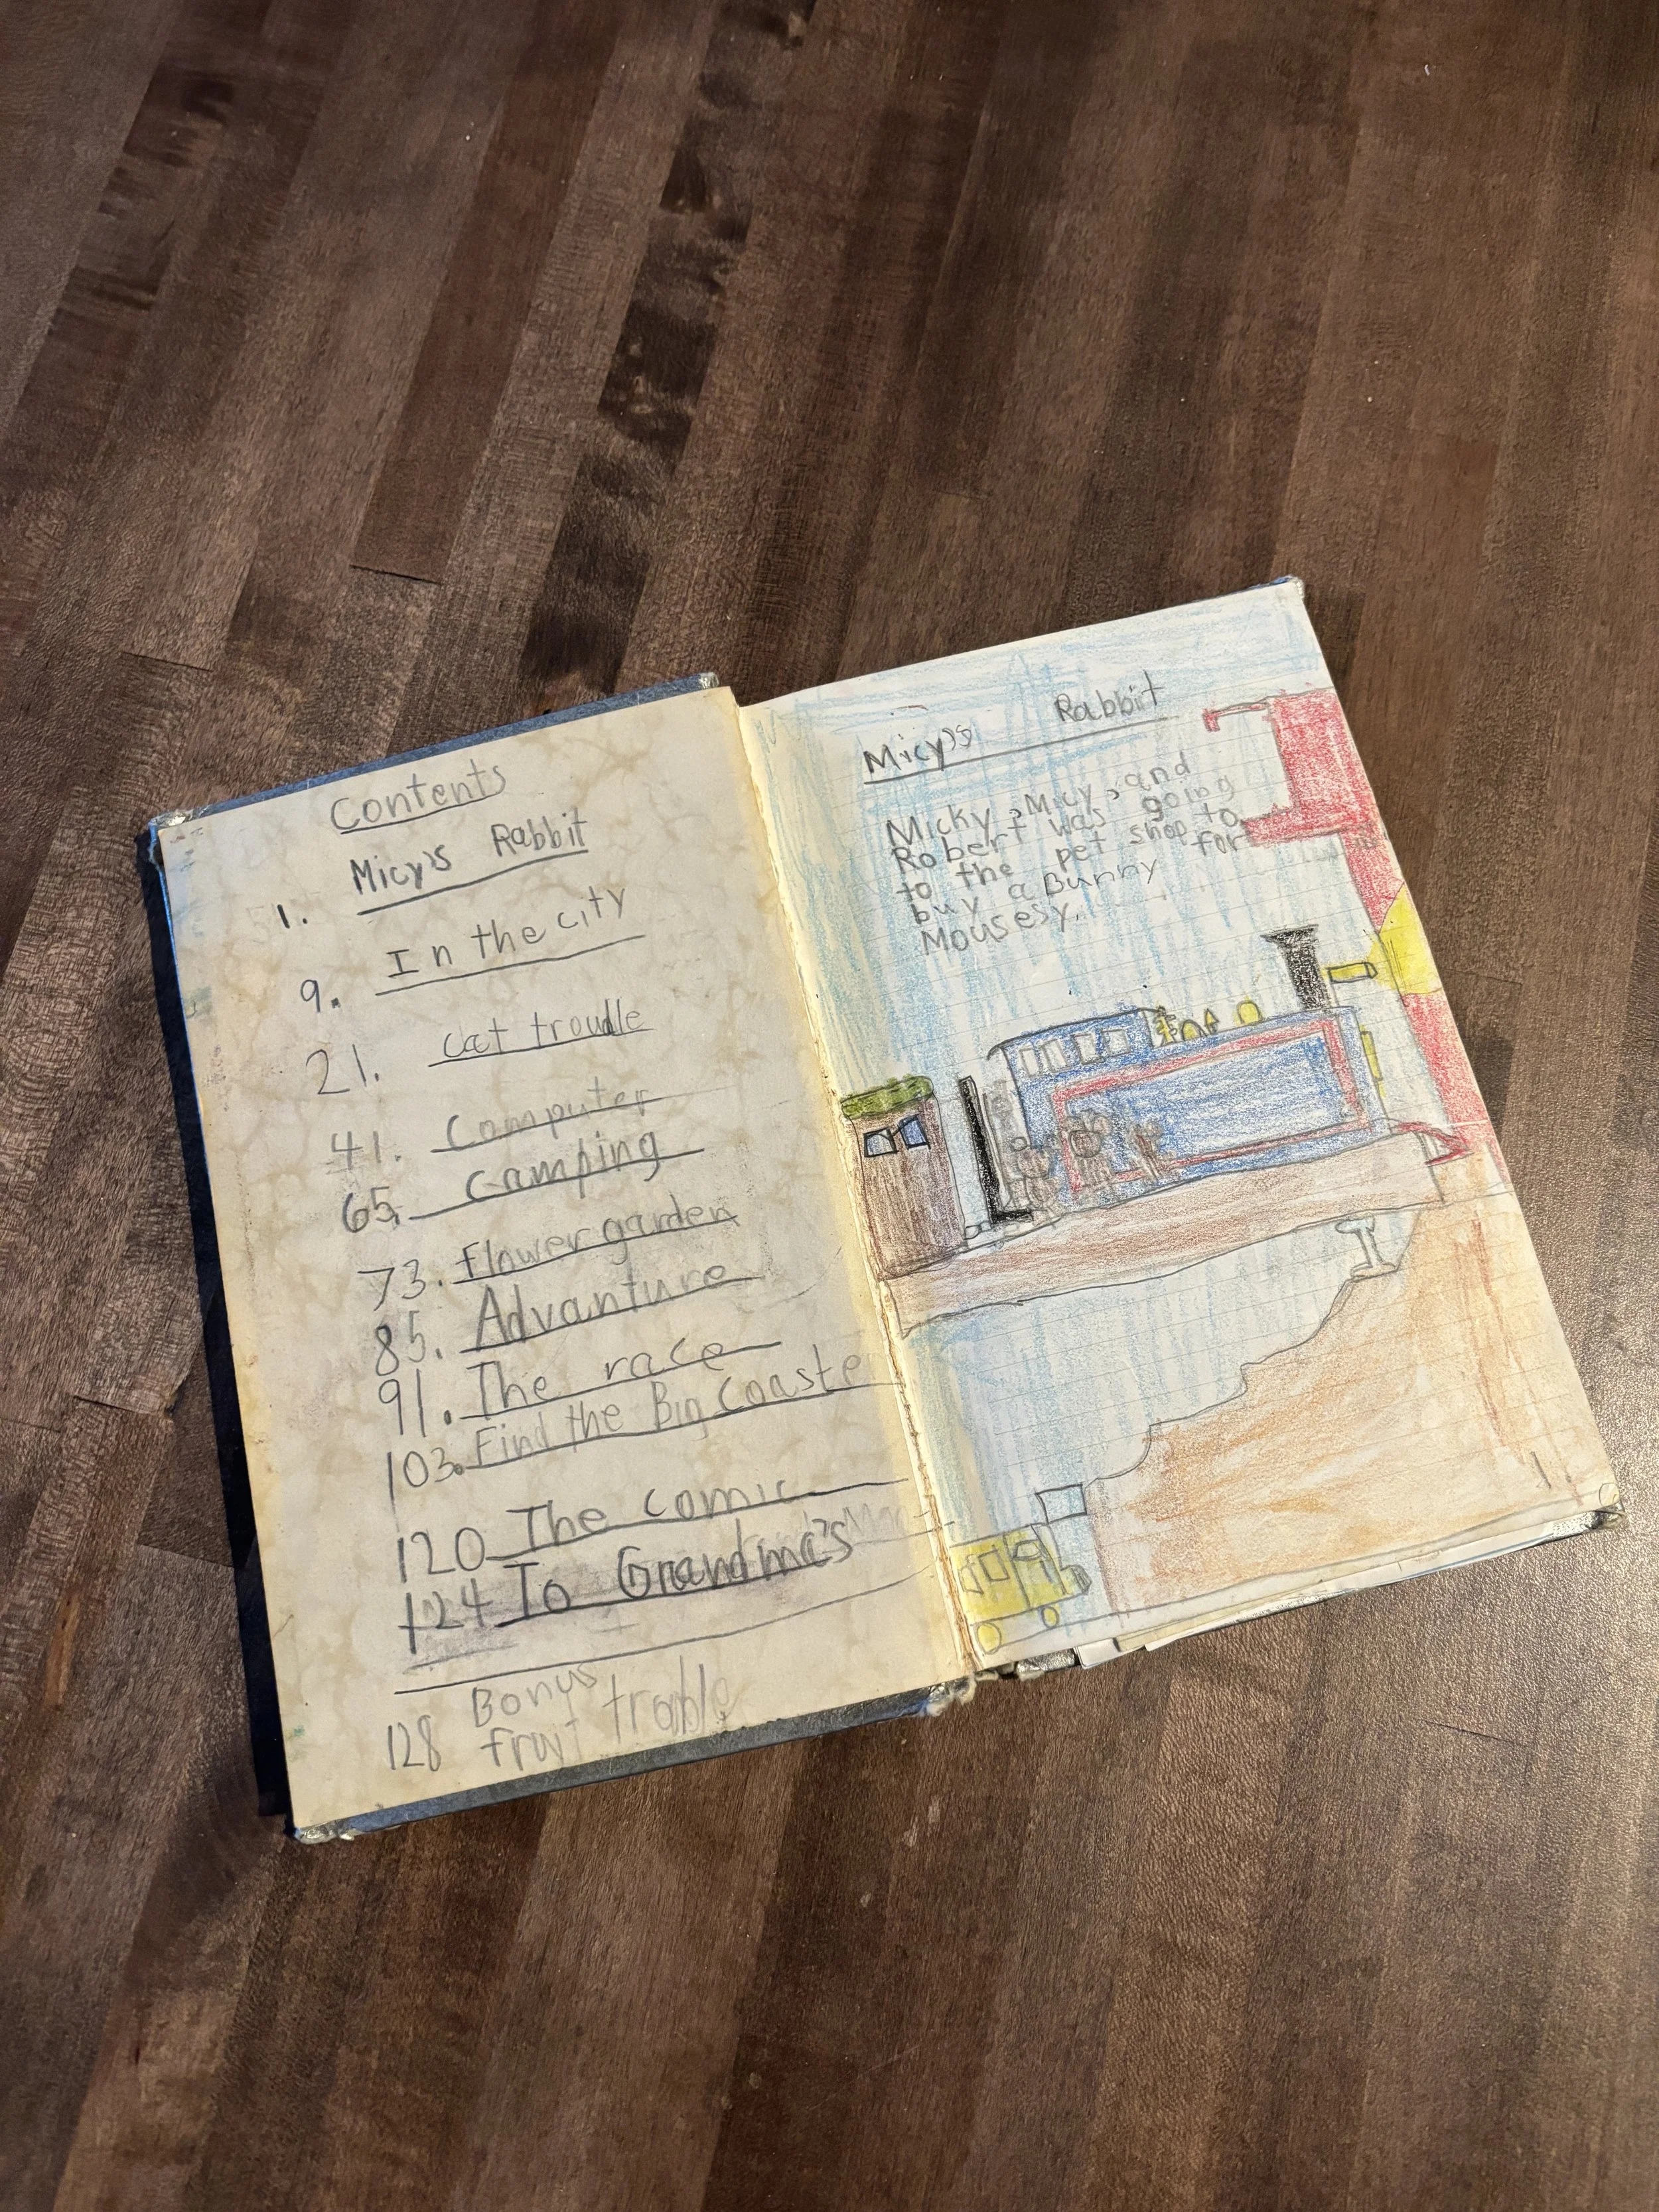 Contents
1. Micy's Rabbit
9. In the city
21. cat troudle
41. Computer
65. camping
73. flower garden
85. Advanture
91. The race
103. Find the Big Coaster
120 The comic
124 To Grandma's
Bonus
128 fruit trable
Micy's Rabbit
Micky, Micy, and
Robert was going
to the pet shop to
buy a Bunny for
Mousesy.
1